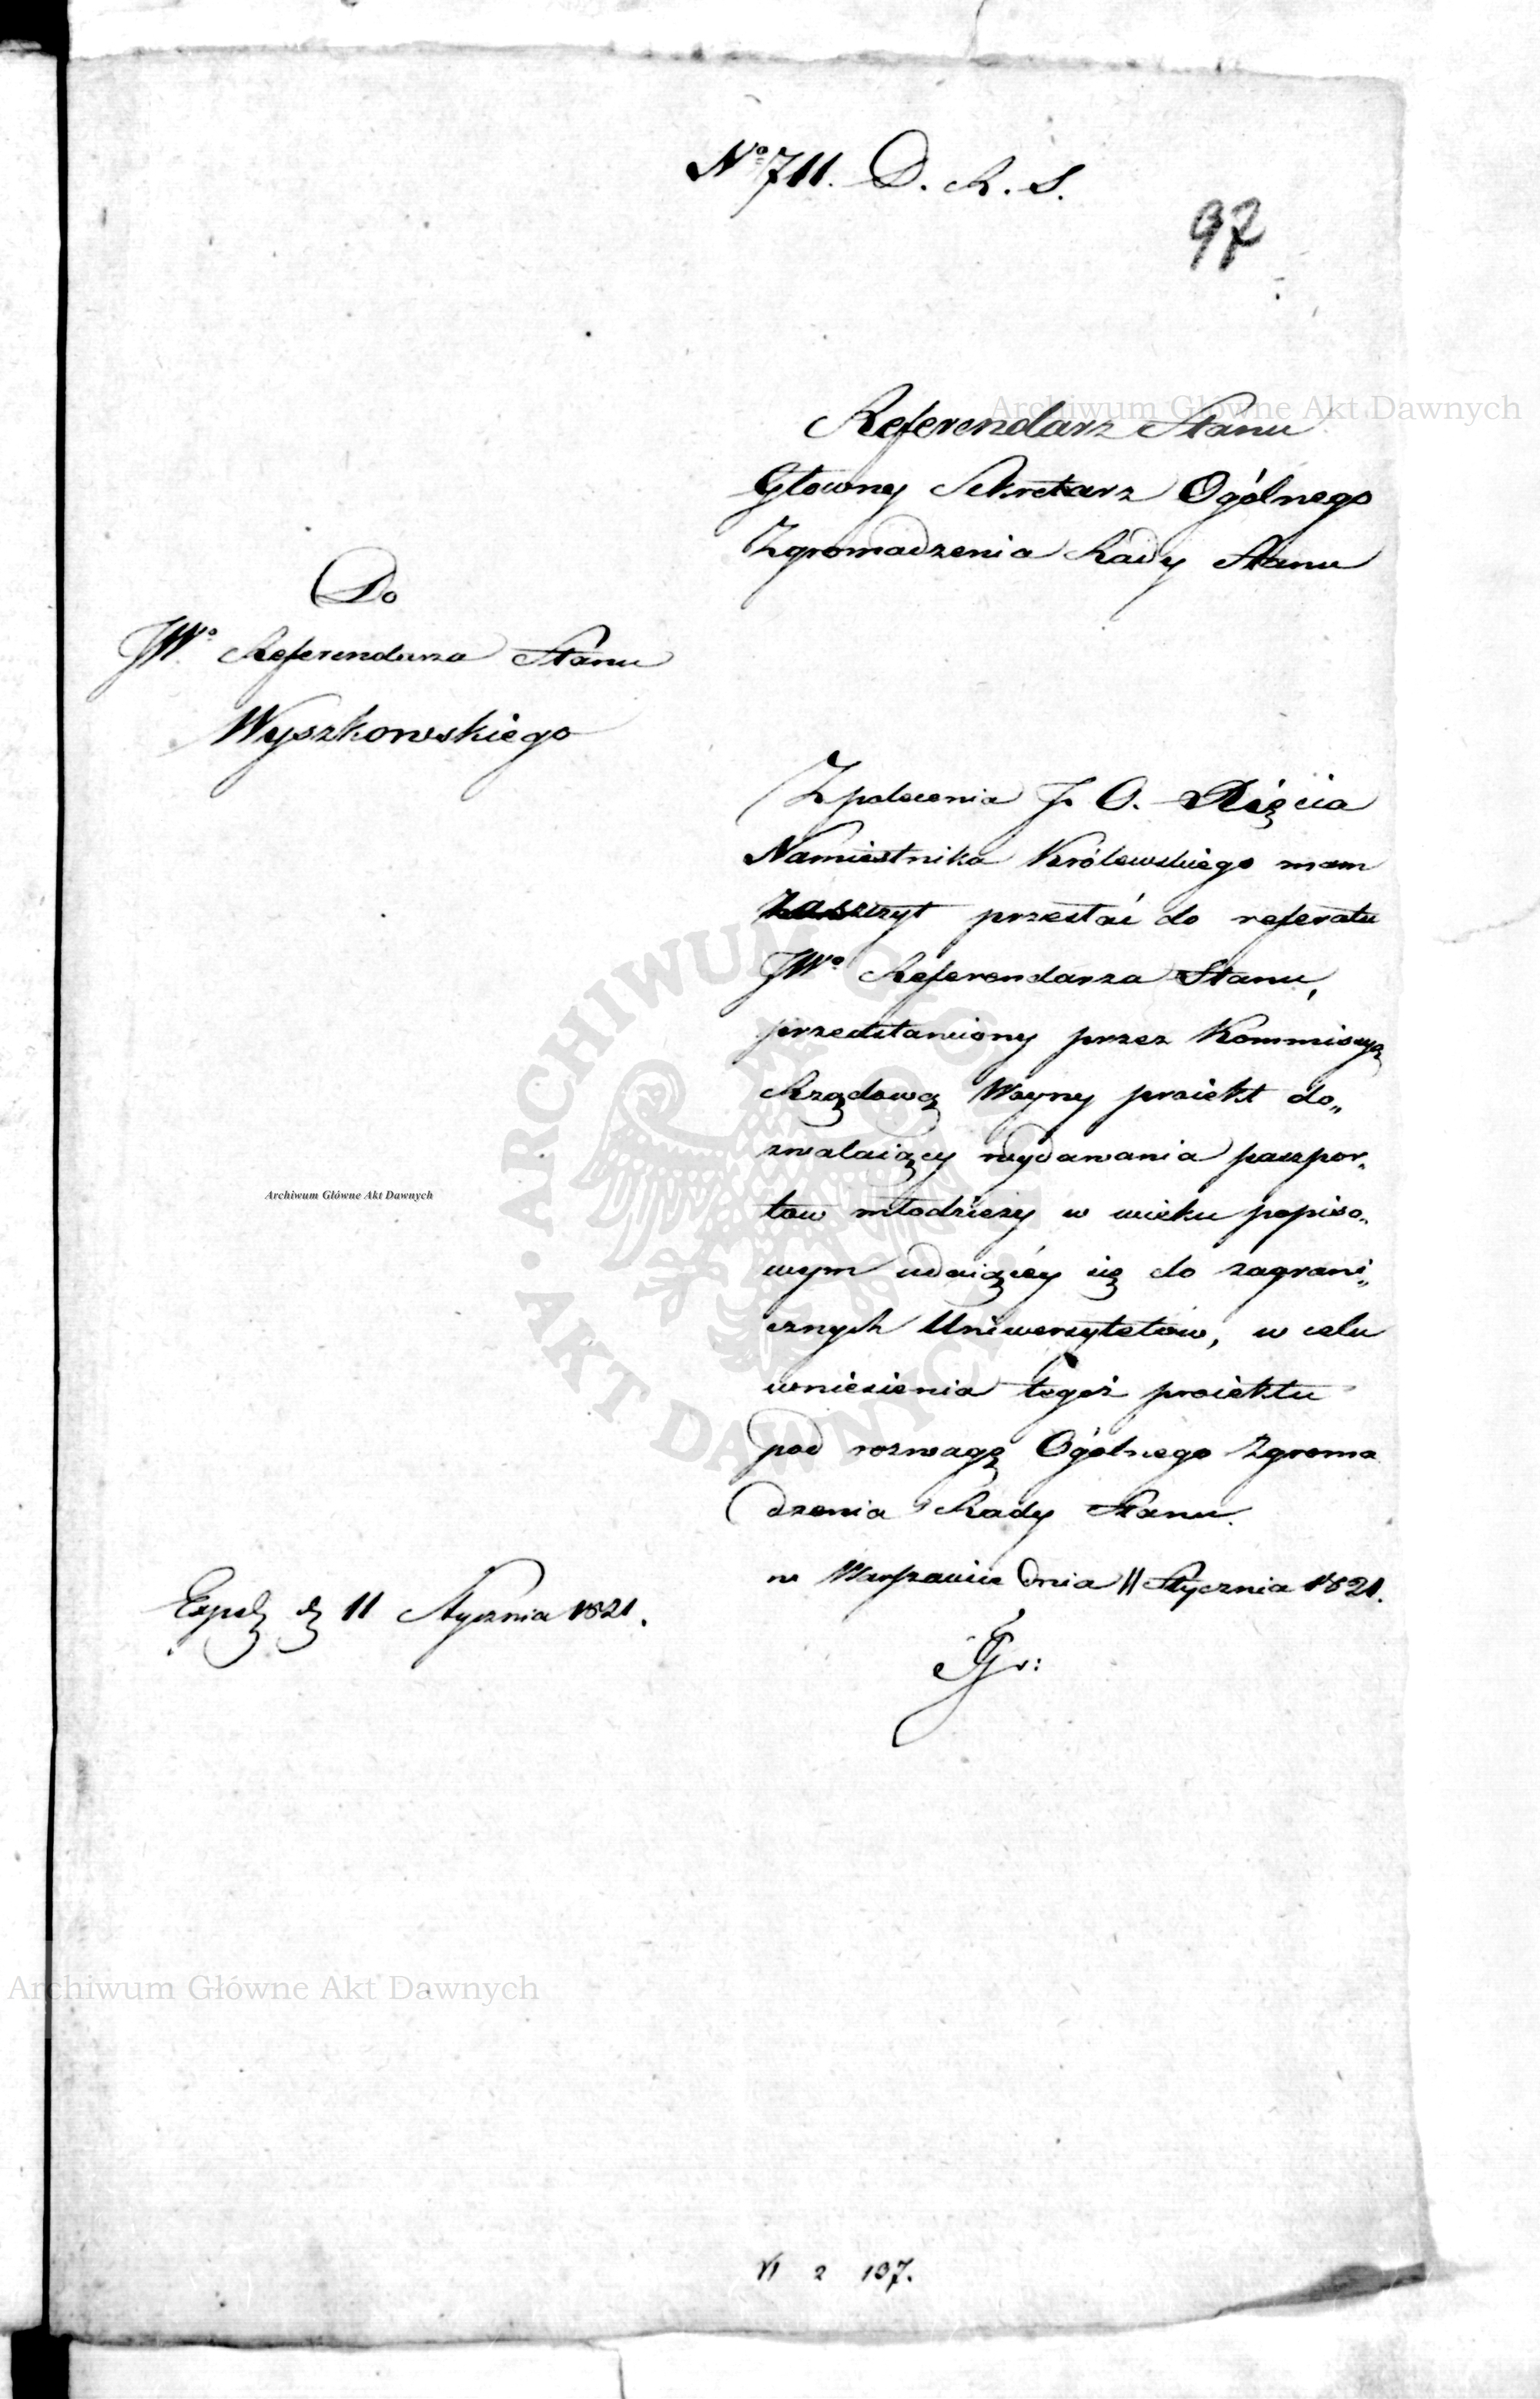 No 711. D. R. S.
97
Referendarz Stanu
Głowny Sekretarz Ogólnego
Zgromadzenia Rady Stanu
Do
JWo Referendarza Stanu
Wyszkowskiego
Z polecenia J. O. Xięcia
Namiestnika Królewskiego mam
zaszczyt przesłać do referatu
JWo Referendarza Stanu,
przedstawiony przez Kommissyą
Rządową Woyny proiekt do„
zwalaiący wydawania paszpor„
tow młodzieży w wieku popiso„
wym udaiącéy się do zagrani„
cznych Uniwersytetów, w celu
wniesienia tegoż proiektu
pod rozwagę Ogólnego Zgroma
dzenia Rady Stanu.
w Warszawie dnia 11 Stycznia 1821.
Exped d 11 Stycznia 1821.
VI 2 107.
Archiwum Główne Akt Dawnych
Archiwum Główne Akt Dawnych
Archiwum Główne Akt Dawnych